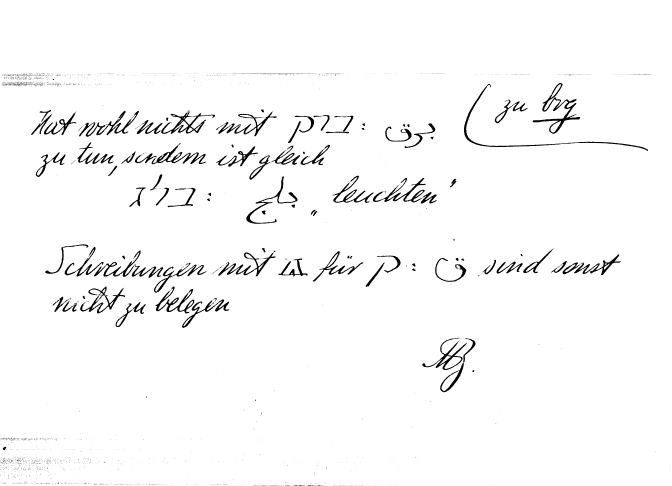 zu brg
Hat wohl nichts mit ברק : برق
zu tun, sondern ist gleich
בלג : بلج „leuchten"
Schreibungen mit 𓎼 für ק : ق sind sonst
nicht zu belegen